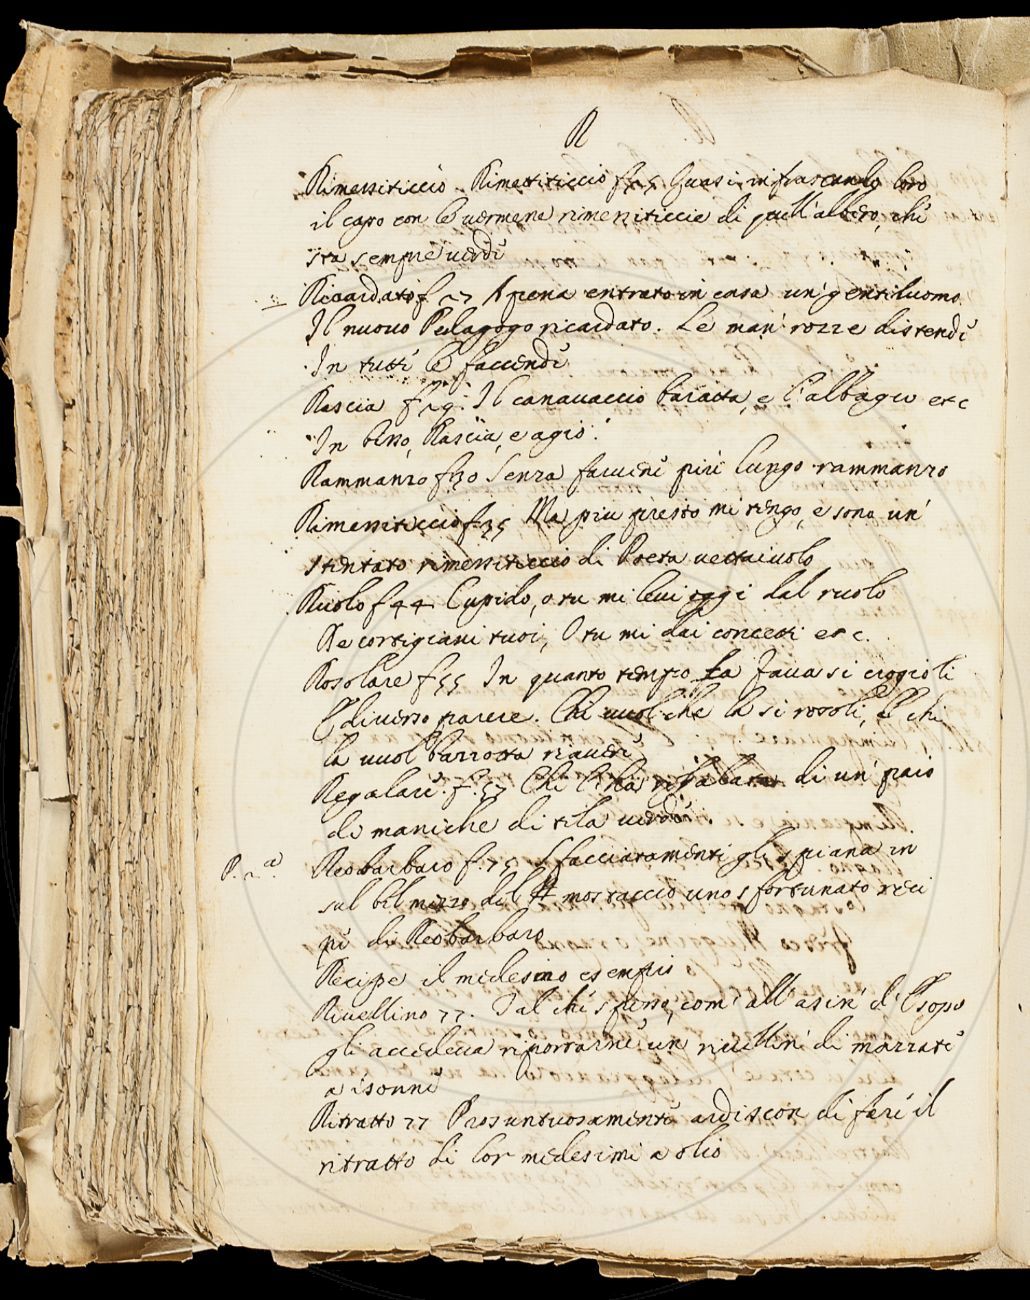 R
Rimessiticcio. Rimettiticcio f. 15 Quasi infrascando loro
il capo con le vermene rimessiticcie di quell'albero, che
sta sempre verde
Ricardato f. 27 Apena entrato in casa un gentiluomo
Il nuovo Pedagogo ricardato. Le man' rozze distende
In tutte le faccende
Rascia f. 29. Il canavaccio baratta, e l'albagio etc
In bisso, Rascia, e agio.
Rammanzo f. 30 Senza farvene più lungo rammanzo
Rimessiticcio f. 35 Ma piu presto mi tengo, e sono un'
stentato rimessiticcio di Poeta vettaiuolo
Ruolo f. 44 Cupido, o tu mi levi oggi dal ruolo
De cortigiani tuoi, O tu mi dai concetti etc.
Rosolare f. 55 In quanto tempo la fava si crogioli
È diverso parere. Chi vuol che la si rosoli, e chi
la vuol barzotta riavere
Regalare. f. 57 Chi l'ha regalata di un' paio
di maniche di tela verde.
P. 2.a Reobarbaro f. 75 Sfacciatamente gli spiana in
sul bel mezzo del mostaccio uno sfortunato reci
pe di Reobarbaro
Recipe il medesimo esempio
Rivellino 77. Tal che spesso, com' all'asin' d' Esopo
gli accadeva riportarne un rivellin' di mazzate
a isonne
Ritratto 77 Prosuntuosamente ardiscon di fare il
ritratto di lor medesimi a olio